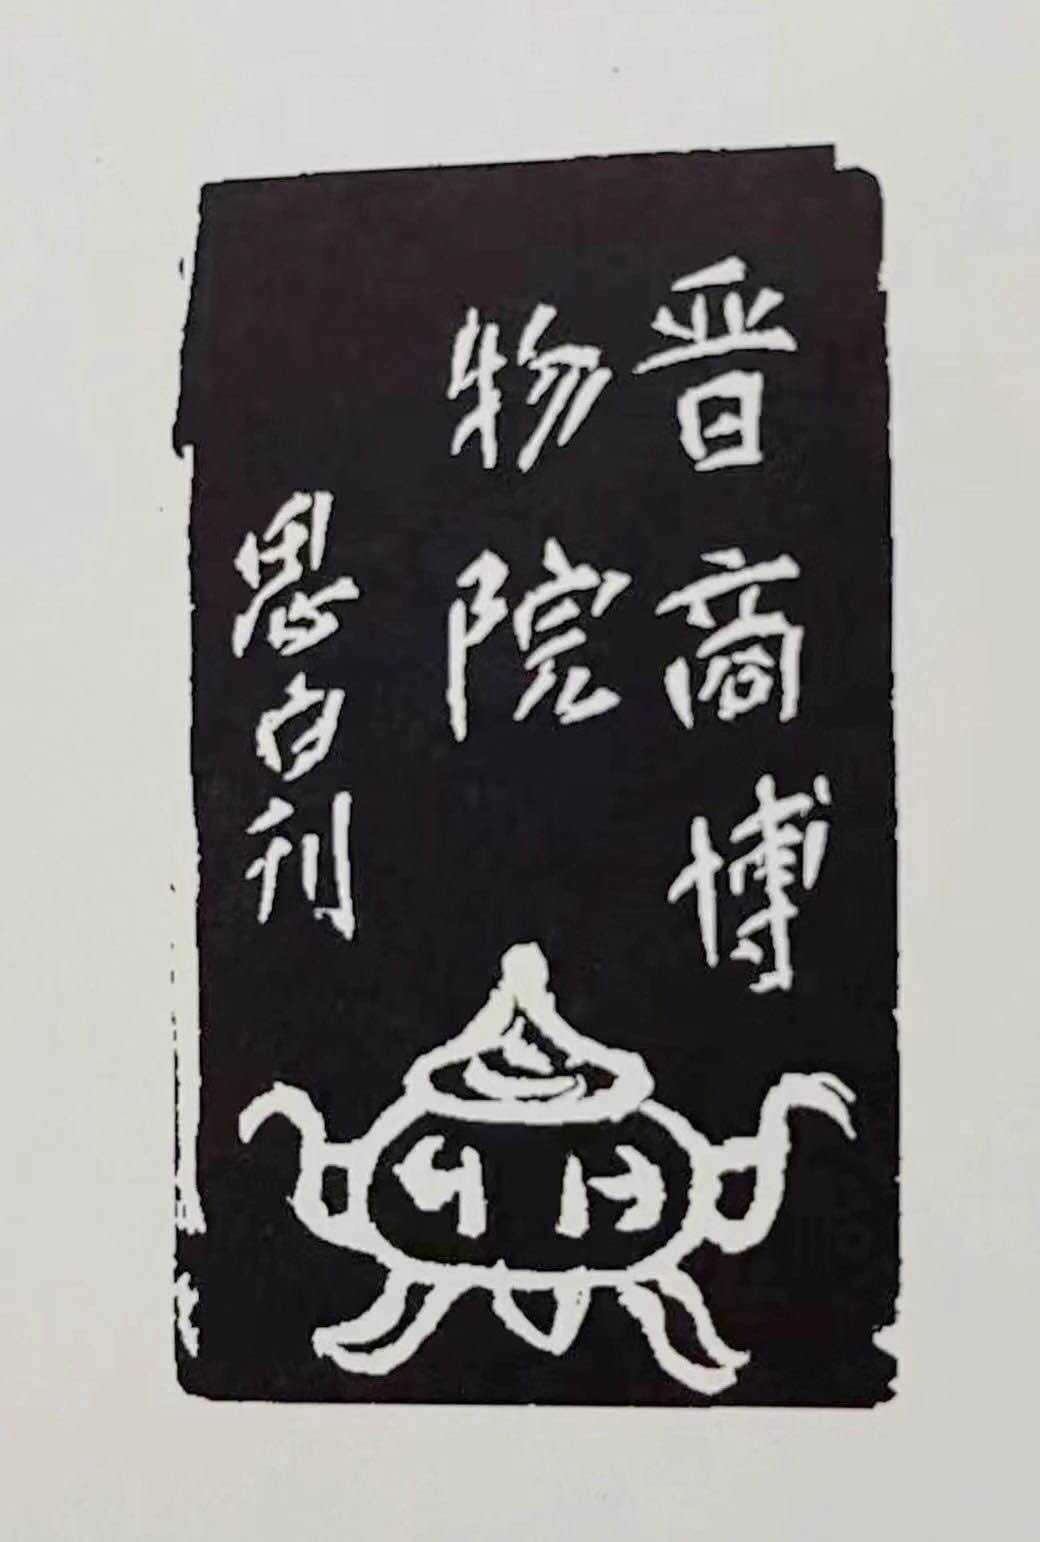 晋商博
物院
愚白刊